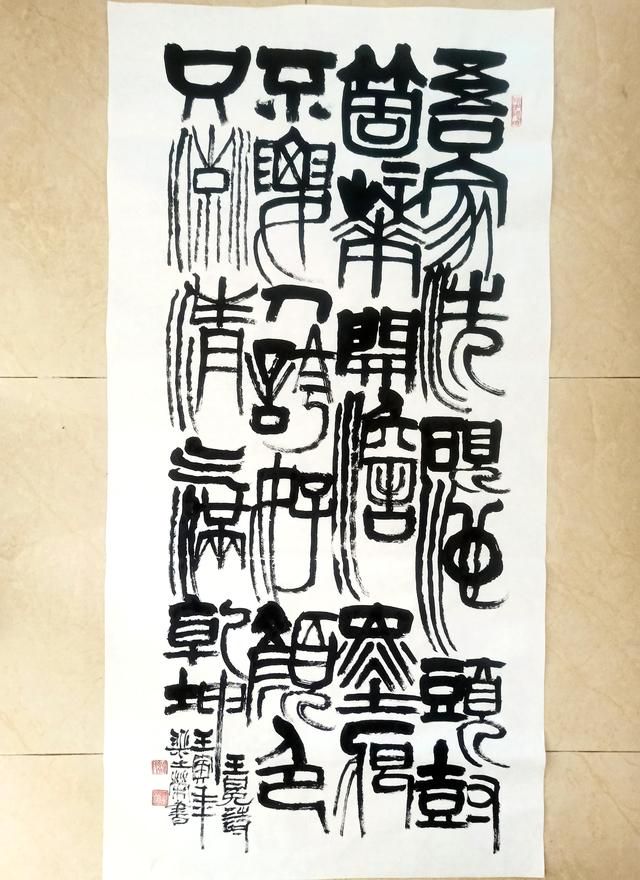 吾家洗硯池頭樹
箇〻華開澹墨痕
不要人誇好顏色
只流清气滿乾坤
王冕詩
壬寅年